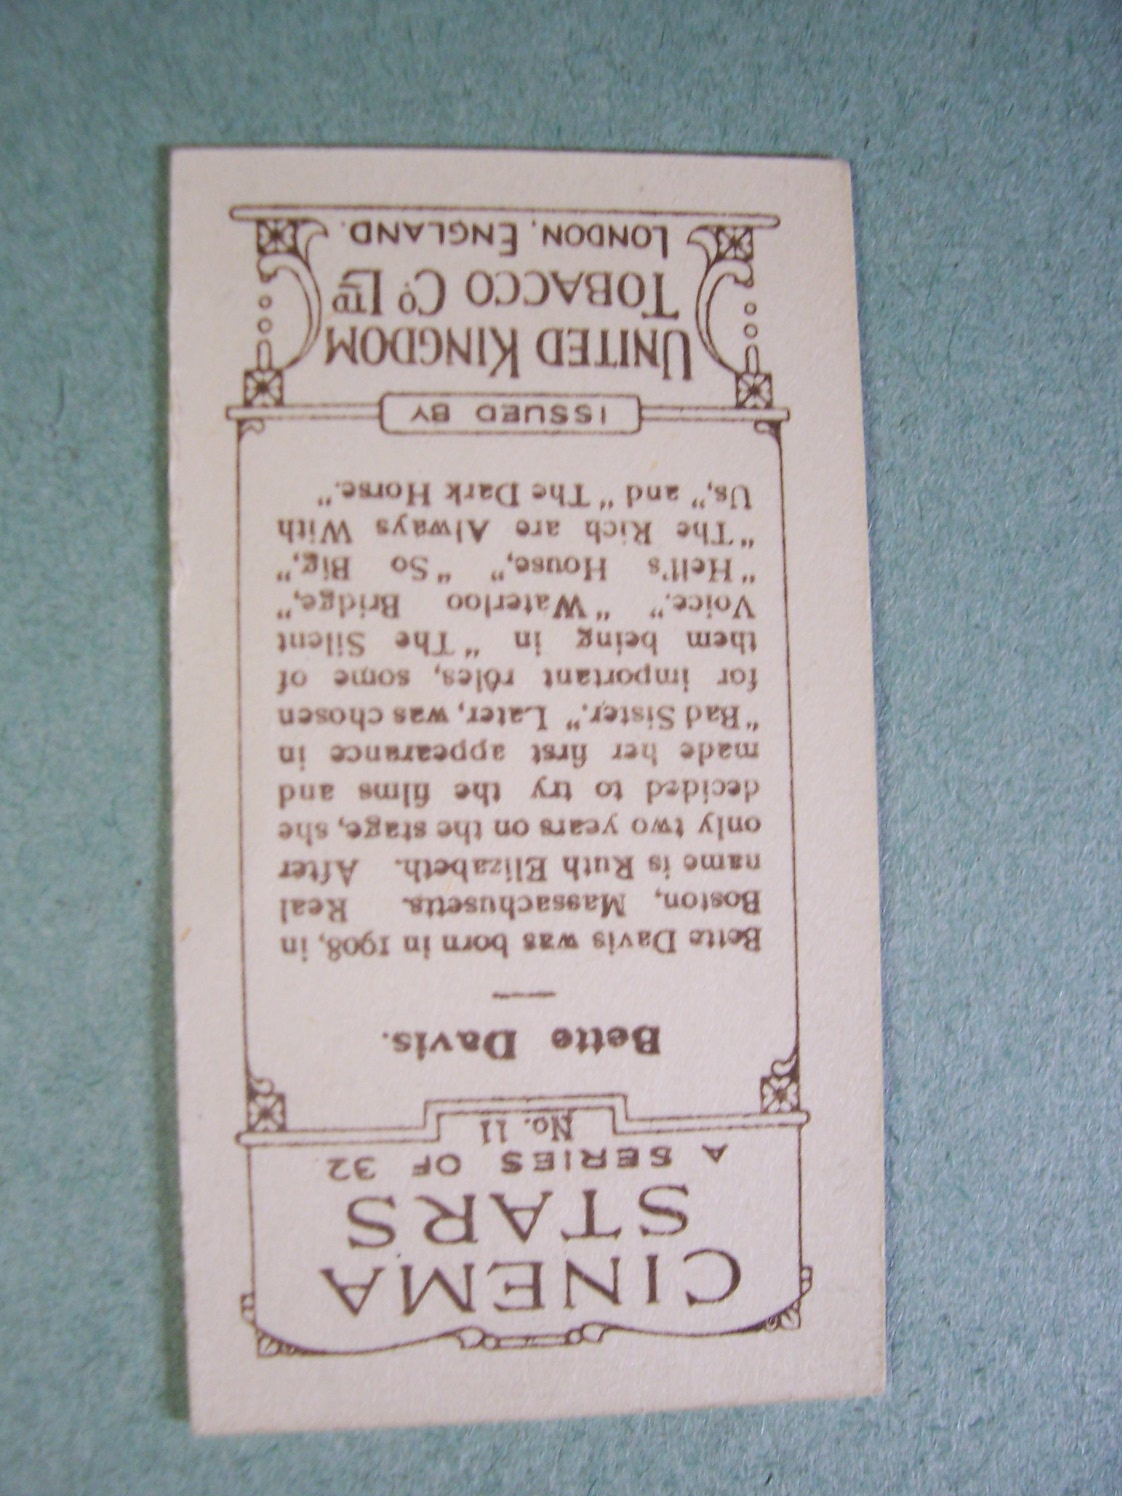 CINEMA
STARS
A SERIES OF 32
No. 11
Bette Davis.
Bette Davis was born in 1908, in
Boston, Massachusetts. Real
name is Ruth Elizabeth. After
only two years on the stage, she
decided to try the films and
made her first appearance in
"Bad Sister." Later, was chosen
for important rôles, some of
them being in "The Silent
Voice." "Waterloo Bridge,"
"Hell's House," "So Big,"
"The Rich are Always With
Us," and "The Dark Horse."
ISSUED BY
UNITED KINGDOM
TOBACCO CO LTD
LONDON, ENGLAND.